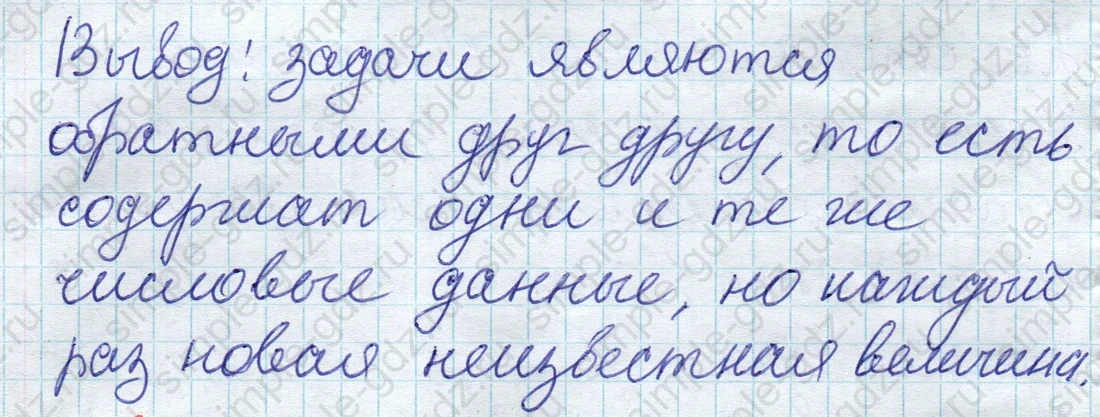 Вывод: задачи являются
обратными друг другу, то есть
содержат одни и те же
числовые данные, но каждый
раз новая неизвестная величина.